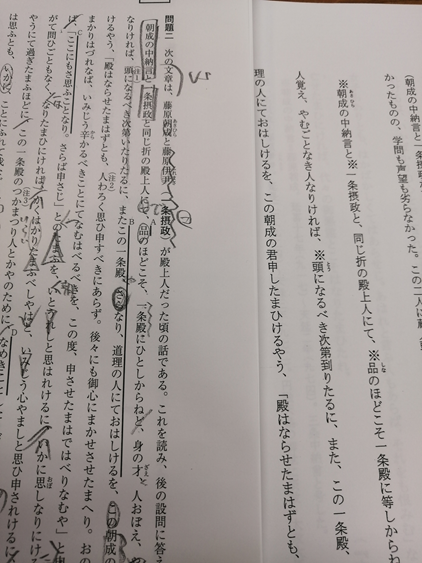 （朝成の中納言と一条摂政
かったものの、学問も声望も劣らなかった。この二人に蔵
※朝成の中納言と※一条摂政と、同じ折の殿上人にて、※品のほどこそ一条殿に等しからね
人覚え、やむごとなき人なりければ、※頭になるべき次第到りたるに、また、この一条殿、
理の人にておはしけるを、この朝成の君申したまひけるやう、「殿はならせたまはずとも、
問題二 次の文章は、藤原朝成と藤原伊尹（一条摂政）が殿上人だった頃の話である。これを読み、後の設問に答え
朝成の中納言と一条摂政と同じ折の殿上人にて、品のほどこそ、一条殿にひとしからねど、身の才、人おぼえ、や
なりければ、頭になるべき次第いたりたるに、またこの一条殿さらなり、道理の人にておはしけるを、この朝成の
けるやう、「殿はならせたまはずとも、人わろく思ひ申すべきにあらず。後々にも御心にまかせさせたまへり。おの
まかりはづれなば、いみじう辛かるべきことにてなむはべるべきを、この度、申させたまはではべりなむや」と申
ば、「ここにもさ思ふことなり。さらば申さじ」とのたまふを、いとうれしと思はれけるに、いかに思しなりにけ
がて問ひごともなく、なりたまひにければ、かくはかりたまふべしやはと、いみじう心やましと思ひ申されけるに
やうにて過ぎたまふほどに、この一条殿のつかまつり人とかやのために、なめきこと
は思ふとも、いかに、ことにふれて我